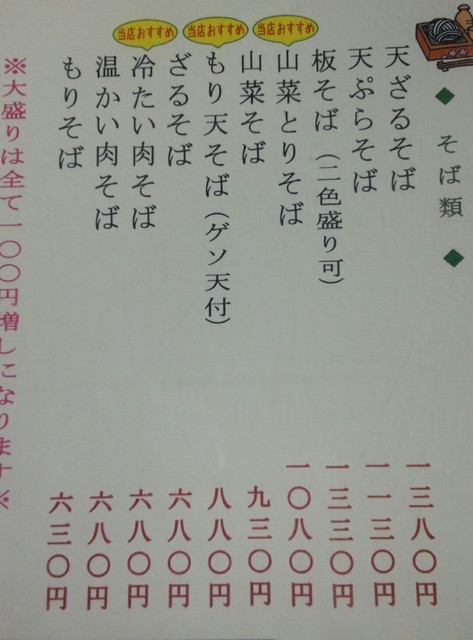 ◆ そば類 ◆
天ざるそば 一三八〇円
天ぷらそば 一一三〇円
板そば（二色盛り可） 一三三〇円
当店おすすめ
山菜とりそば 一〇八〇円
山菜そば 九三〇円
当店おすすめ
もり天そば（ゲソ天付） 八八〇円
ざるそば 六八〇円
当店おすすめ
冷たい肉そば 六八〇円
温かい肉そば 六八〇円
もりそば 六三〇円
※大盛りは全て一〇〇円増しになります※